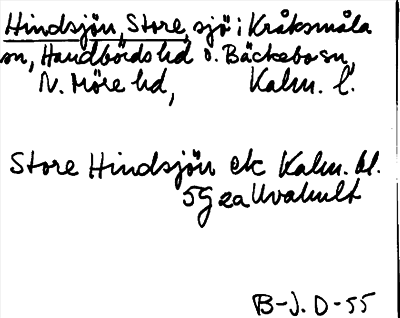 Hindsjön, Store, sjö i Kråksmåla
sn, Handbörds hd o. Bäckebo sn,
N. Möre hd, Kalm. l.
Store Hindsjön ek Kalm. bl.
5g ea Uvahult
B-J. D-55